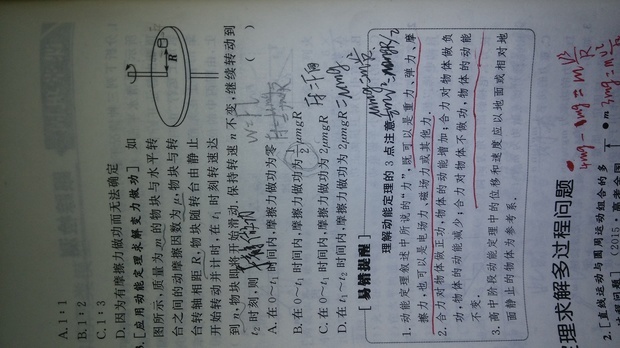 A. 1∶1
B. 1∶2
C. 1∶3
D. 因为有摩擦力做功而无法确定
[应用动能定理求解变力做功] 如
图所示,质量为 m 的物块与水平转
台之间的动摩擦因数为 μ,物块与转
台转轴相距 R,物块随转台由静止
开始转动并计时,在 t₁ 时刻转速达
到 n,物块即将开始滑动.保持转速 n 不变,继续转动到
t₂ 时刻,则 ( )
A. 在 0~t₁ 时间内,摩擦力做功为零
B. 在 0~t₁ 时间内,摩擦力做功为 1/2 μmgR
C. 在 0~t₁ 时间内,摩擦力做功为 2μmgR
D. 在 t₁~t₂ 时间内,摩擦力做功为 2μmgR
R
[易错提醒]
理解动能定理的 3 点注意
1. 动能定理叙述中所说的“力”,既可以是重力、弹力、摩
擦力,也可以是电场力、磁场力或其他力.
2. 合力对物体做正功,物体的动能增加;合力对物体做负
功,物体的动能减少;合力对物体不做功,物体的动能
不变.
3. 高中阶段动能定理中的位移和速度应以地面或相对地
面静止的物体为参考系.
理求解多过程问题
2. [直线运动与圆周运动组合的多
(2015·高考